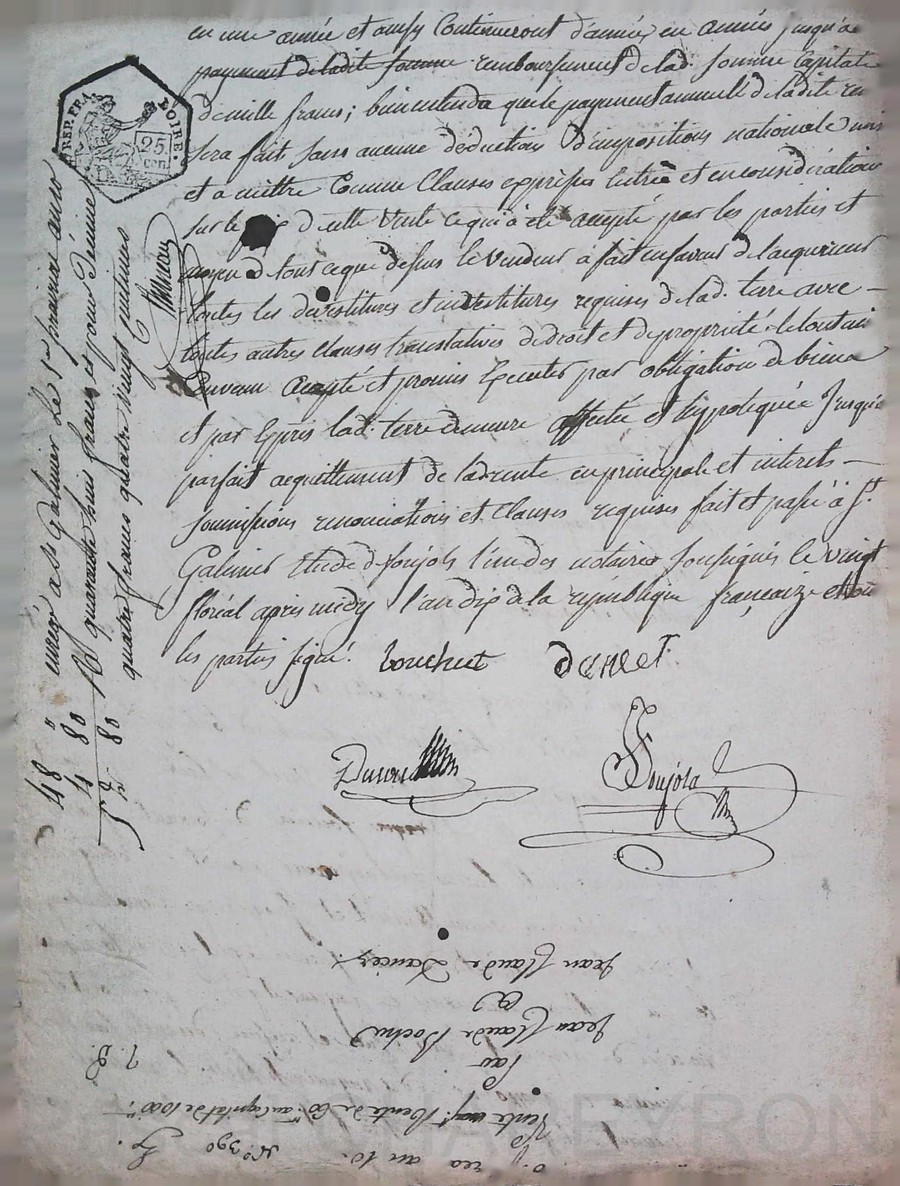 en une année et ainsy Continueront d'année en années jusqu'au
payement de ladite somme remboursement de lad. somme Capitale
de mille francs; bien entendu que le payement annuel de ladite
sera fait sans aucune déduction d'impositions nationale mis
et a mettre Comme Clauses expresses entrée et en considération
sur le d'cette Vente ce qui a été accepté par les parties et
moyen de tout ce que dessus le Vendeur a fait en faveur de l'acquereur
toutes les devestitures et investitures requises de lad. terre avec
toutes autres clauses translatives de droit et de propriété le tout
Convenu accepté et promis Executer par obligation de biens
et par Exprès lad. terre demeure affectée et hippotequée Jusqu'à
parfait acquittement de lad. rente en principale et interets
soumissions renonciations et Clauses requises fait et passé à St
Galmier Etude de Soujols l'un des notaires soussignés le vingt
floréal après midy l'an dix de la république françaize et ont
les parties signé. bouchut dancer
Soujols
REP. FRA
25 cen.
enreg. a St Galmier le 5 prairial an 10
quarante huit francs et pour dixième
quatre francs quatre vingt centimes
48 "
4 80
52 - 80
O. J rea an 10. N° 390
Vente Rente de 60 au capital de 1000
par
Jean Claude Bochu
a
Jean Claude Dancer